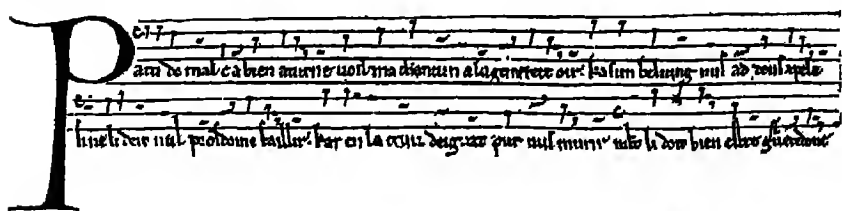 Parti de mal e a bien aturne voil ma chancun a la gent fere oir. ka sun besuing nus ad deus apele
si ne li deit nul prosdome faillir. kar en la cruiz deignat pur nus murir mlt li doit bien estre guerdone